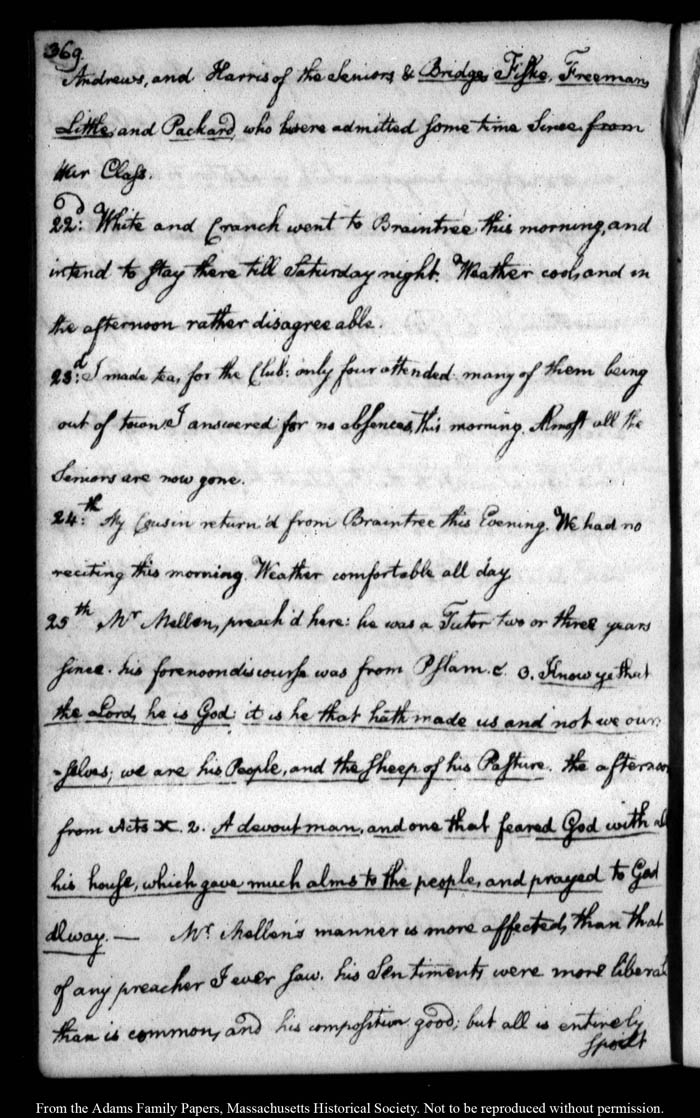 369.
Andrews, and Harris of the Seniors & Bridge, Fiske, Freeman,
Little, and Packard, who were admitted some time since from
our Class.
22d: White and Cranch went to Braintree this morning, and
intend to stay there till Saturday night. Weather cool, and in
the afternoon rather disagreeable.
23d: I made tea, for the Club: only four attended. many of them being
out of town. I answered for no absences, this morning. Almost all the
Seniors are now gone.
24:th My Cousin return'd from Braintree this Evening. We had no
reciting this morning. Weather comfortable all day
25th Mr Mellen, preach'd here: he was a Tutor two or three years
since. his forenoon discourse was from Pslam. c. 3. Know ye that
the Lord, he is God: it is he that hath made us and not we our
-selves; we are his People, and the sheep of his Pasture. the afternoon
from Acts X. 2. A devout man, and one that feared God with all
his house, which gave much alms to the people, and prayed to God
alway. — Mr. Mellen's manner is more affected, than that
of any preacher I ever saw. his Sentiments were more liberal
than is common, and his composition good; but all is entirely
spoilt
From the Adams Family Papers, Massachusetts Historical Society. Not to be reproduced without permission.